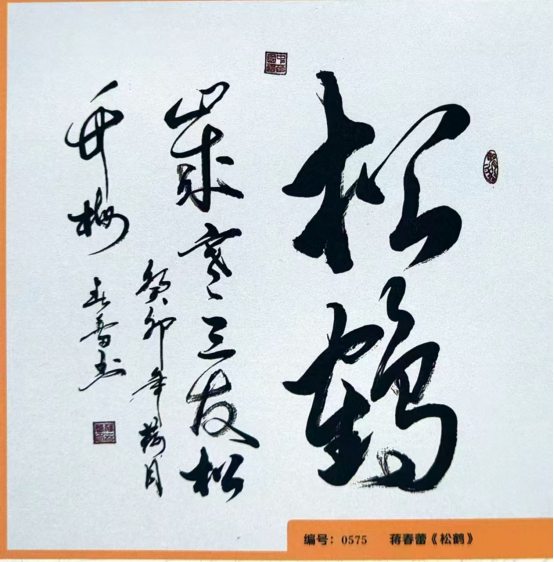 松鹤
岁寒三友松
竹梅
癸卯年荷月
春蕾书
编号：0575 蒋春蕾《松鹤》